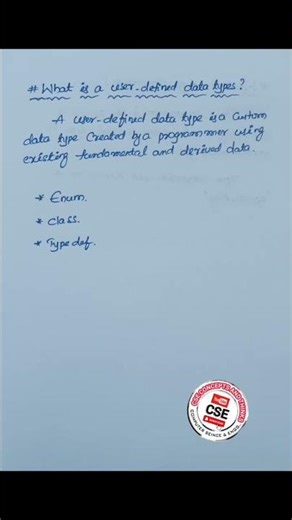 # What is a user-defined data types?
-A user-defined data type is a Custom
data type Created by a programmer using
existing fundamental and derived data.
* Enum.
* Class.
* Typedef.
CSE CONCEPTS AND THINGS
CSE